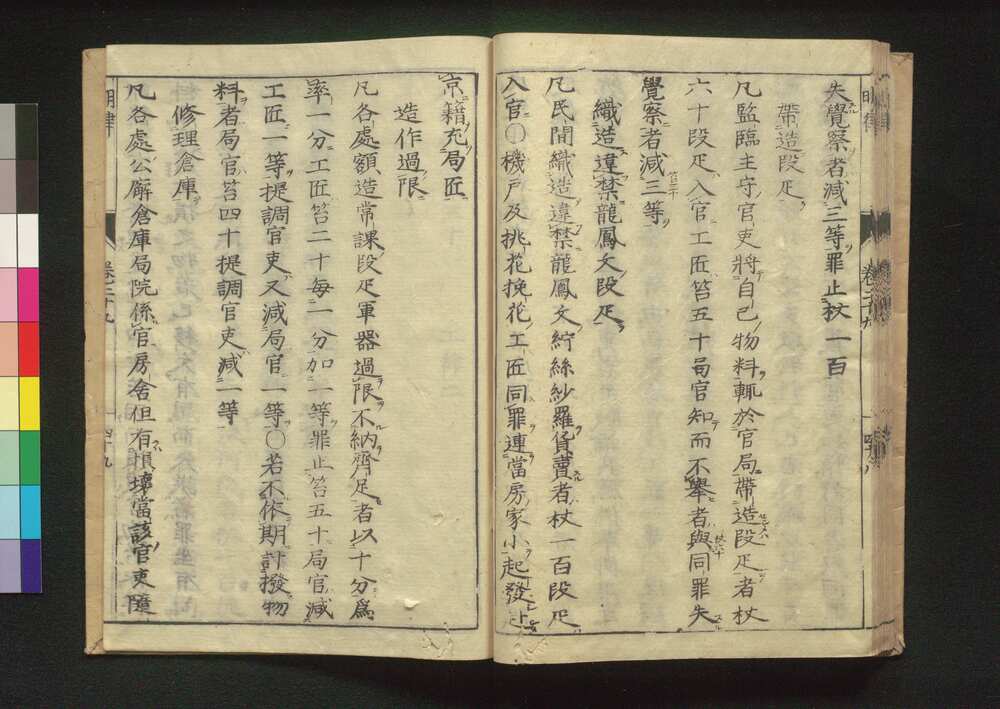 失覺察者減三等罪止杖一百
帶造段疋
凡監臨主守官吏將自己物料輒於官局帶造段疋者杖
六十段疋入官工匠笞五十局官知而不舉者與同罪失
覺察者減三等
織造違禁龍鳳文段疋
凡民間織造違禁龍鳳文紵絲紗羅貨賣者杖一百段疋
入官〇機戶及挑花挽花工匠同罪連當房家小起發赴
京籍充局匠
造作過限
凡各處額造常課段疋軍器過限不納齊足者以十分爲
率一分工匠笞二十每一分加一等罪止笞五十局官減
工匠一等提調官吏又減局官一等〇若不依期計撥物
料者局官笞四十提調官吏減一等
修理倉庫
凡各處公廨倉庫局院係官房舍但有損壞當該官吏隨
明律
卷二十九
四十九